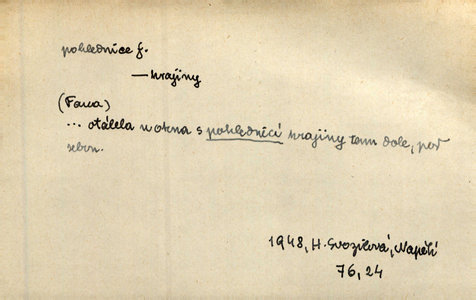 pohlednice f.
— krajiny
(Fawa)
... otálela u okna s pohlednicí krajiny tam dole, pod
sebou.
1948, H. Svozilová, Napětí
76, 24